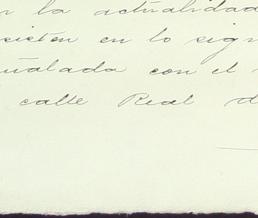 r la actualidad
sisten en lo sig
ñalada con el
calle Real d